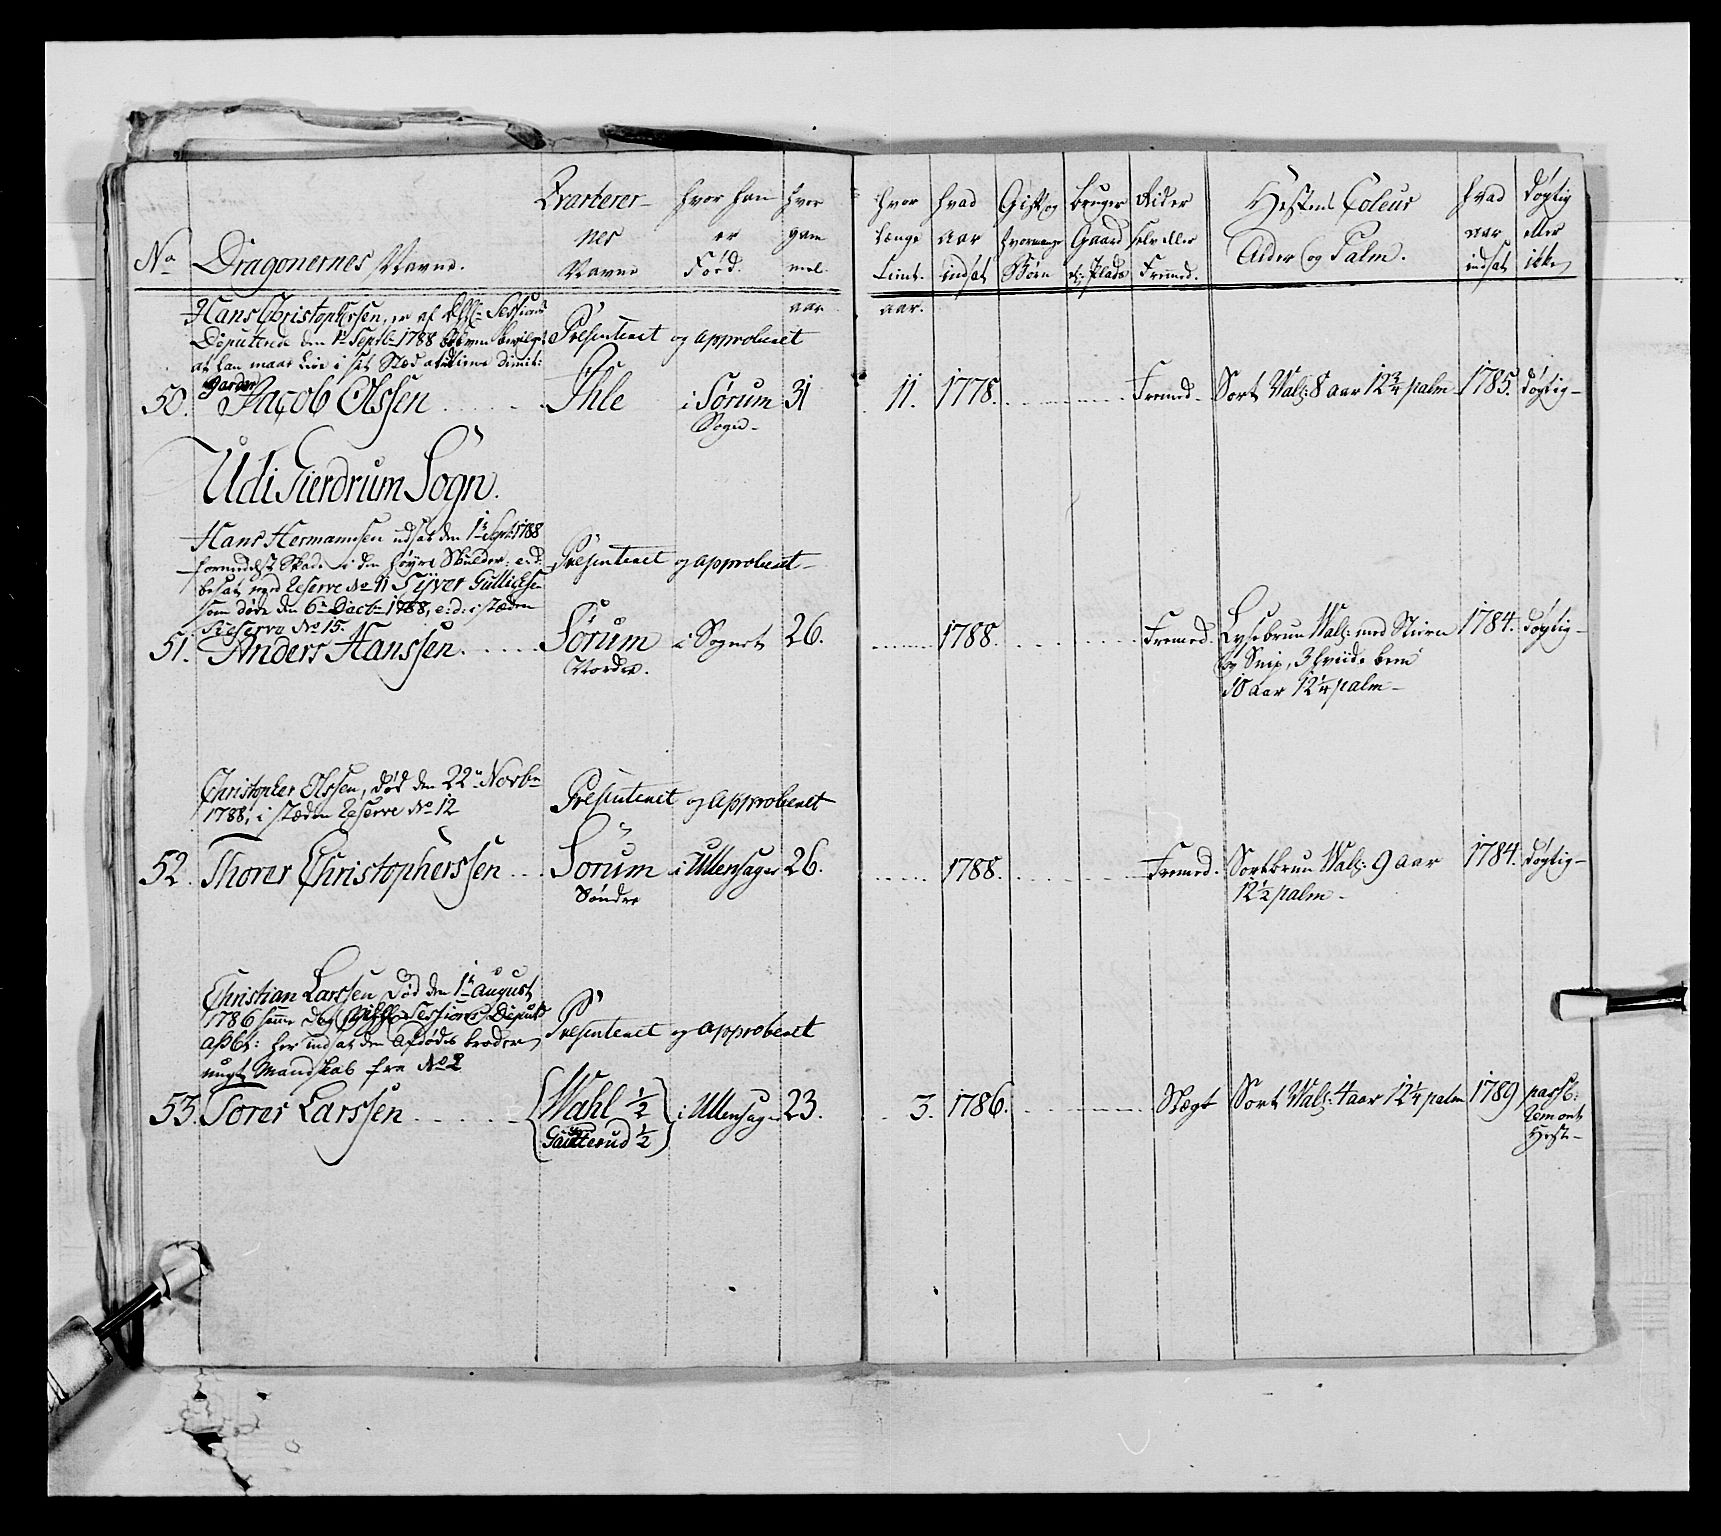 No Dragonernes Navne. Qvarterernes Navne hvor han er Fød. hvor gammel. aar
hvor længe tient. aar. hvad aar indsat Gift og hvormange Børn bruger Gaard el: Plads Rider selv eller Fremed. Hestens Coleur Alder og Palm. hvad aar indsat døgtig eller ikke
Hans Christophersen, er af Sessions
Deputerede den 1te Septbr 1788 bleven bevilget
at han maae i sit Stæd dimit:
Presenteret og approberet
Garder
50. Jacob Olssen Ihle i Sørum Sogn 31 11. 1778. Fremed Sort Val: 8 aar 12 3/4 palm 1785. døgtig
Udi Gierdrum Sogn.
Hans Hermannsen udsat den 1te Sept: 1788
formedelst Skade i den høyre Skulder, e: d:
besat med Reserve No 11 Syver Gullichsen
som døde den 6te Decbr 1788, e: d: i stæden
Reserve No 15.
Presenteret og approberet
51. Anders Hanssen Sørum Nordre i Sognet 26. 1788. Fremed. Lysebrun Val: med Stiern
og Snip, 3 hviide been
10 aar 12 1/4 palm 1784. døgtig
Christopher Olssen, død den 22de Novbr
1788, i stæden Reserve No 12
Presenteret og approberet
52. Thorer Christopherssen Sørum Søndre i Ullensager 26. 1788. Fremed. Sortbrun Val: 9 aar
12 1/2 palm 1784. døgtig
Christian Larssen død den 1te August
1786 samme dag Sessions Deput:
her ind at den Afdødes broder
ungt Mandskab fra No 2
Presenteret og approberet
53. Torer Larssen Wahl 1/2 i Ullensager 23. 3. 1786. Slegt Sort Val: 4 aar 12 1/4 palm 1789 passb:
1/2 Remont
Hest